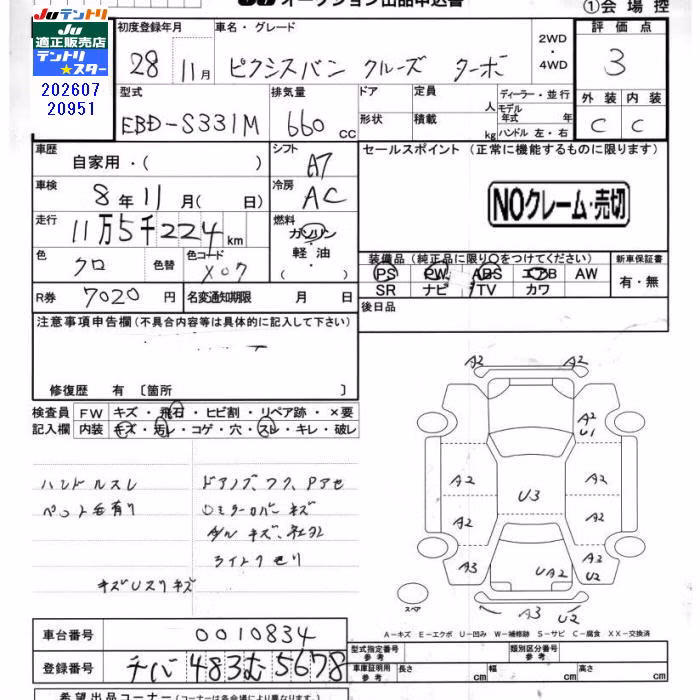 Juオークション出品申込書
①会場控
Juテントリ
Ju
適正販売店
テントリ
★スター
202607
20951
初度登録年月
28 11月
車名・グレード
ピクシスバン クルーズ ターボ
2WD
・
4WD
評価点
3
外装 内装
C C
型式
EBD-S331M
排気量
660 cc
ドア
形状
定員
人
積載
kg
ディーラー・並行
モデル年式 年
ハンドル 左・右
車歴
自家用・( )
シフト
A7
セールスポイント (正常に機能するものに限ります)
NOクレーム・売切
車検
8年11月( 日)
冷房
AC
走行
11万5千224km
燃料
ガソリン
・
軽油
・
( )
色
クロ
色替
色コード
X07
装備品(純正品に限り○をつけてください)
PS PW ABS エアB AW
SR ナビ TV カワ
新車保証書
有・無
R券 7020円
名変通知期限 月 日
後日品
注意事項申告欄(不具合内容等は具体的に記入して下さい)
修復歴 有 〔箇所 〕
検査員
記入欄
FW キズ・飛石・ヒビ割・リペア跡・×要
内装 キズ・汚レ・コゲ・穴・スレ・キレ・破レ
ハンドルスレ
ペット毛有り
キズUスクキズ
ライトクモリ
A2 A2
A2
U1
A2 A2
U3
A2 A2
A3 UA2 A2
U2
A3 U2
スペア
A-キズ E-エクボ U-凹み W-補修跡 S-サビ C-腐食 XX-交換済
車台番号 0010834
登録番号 チバ 483む5678
型式指定番号
参考
類別区分番号
参考
車庫証明用
参考
長さ cm 幅 cm 高さ cm
希望出品コーナー(コーナーは各会場により異なります。)